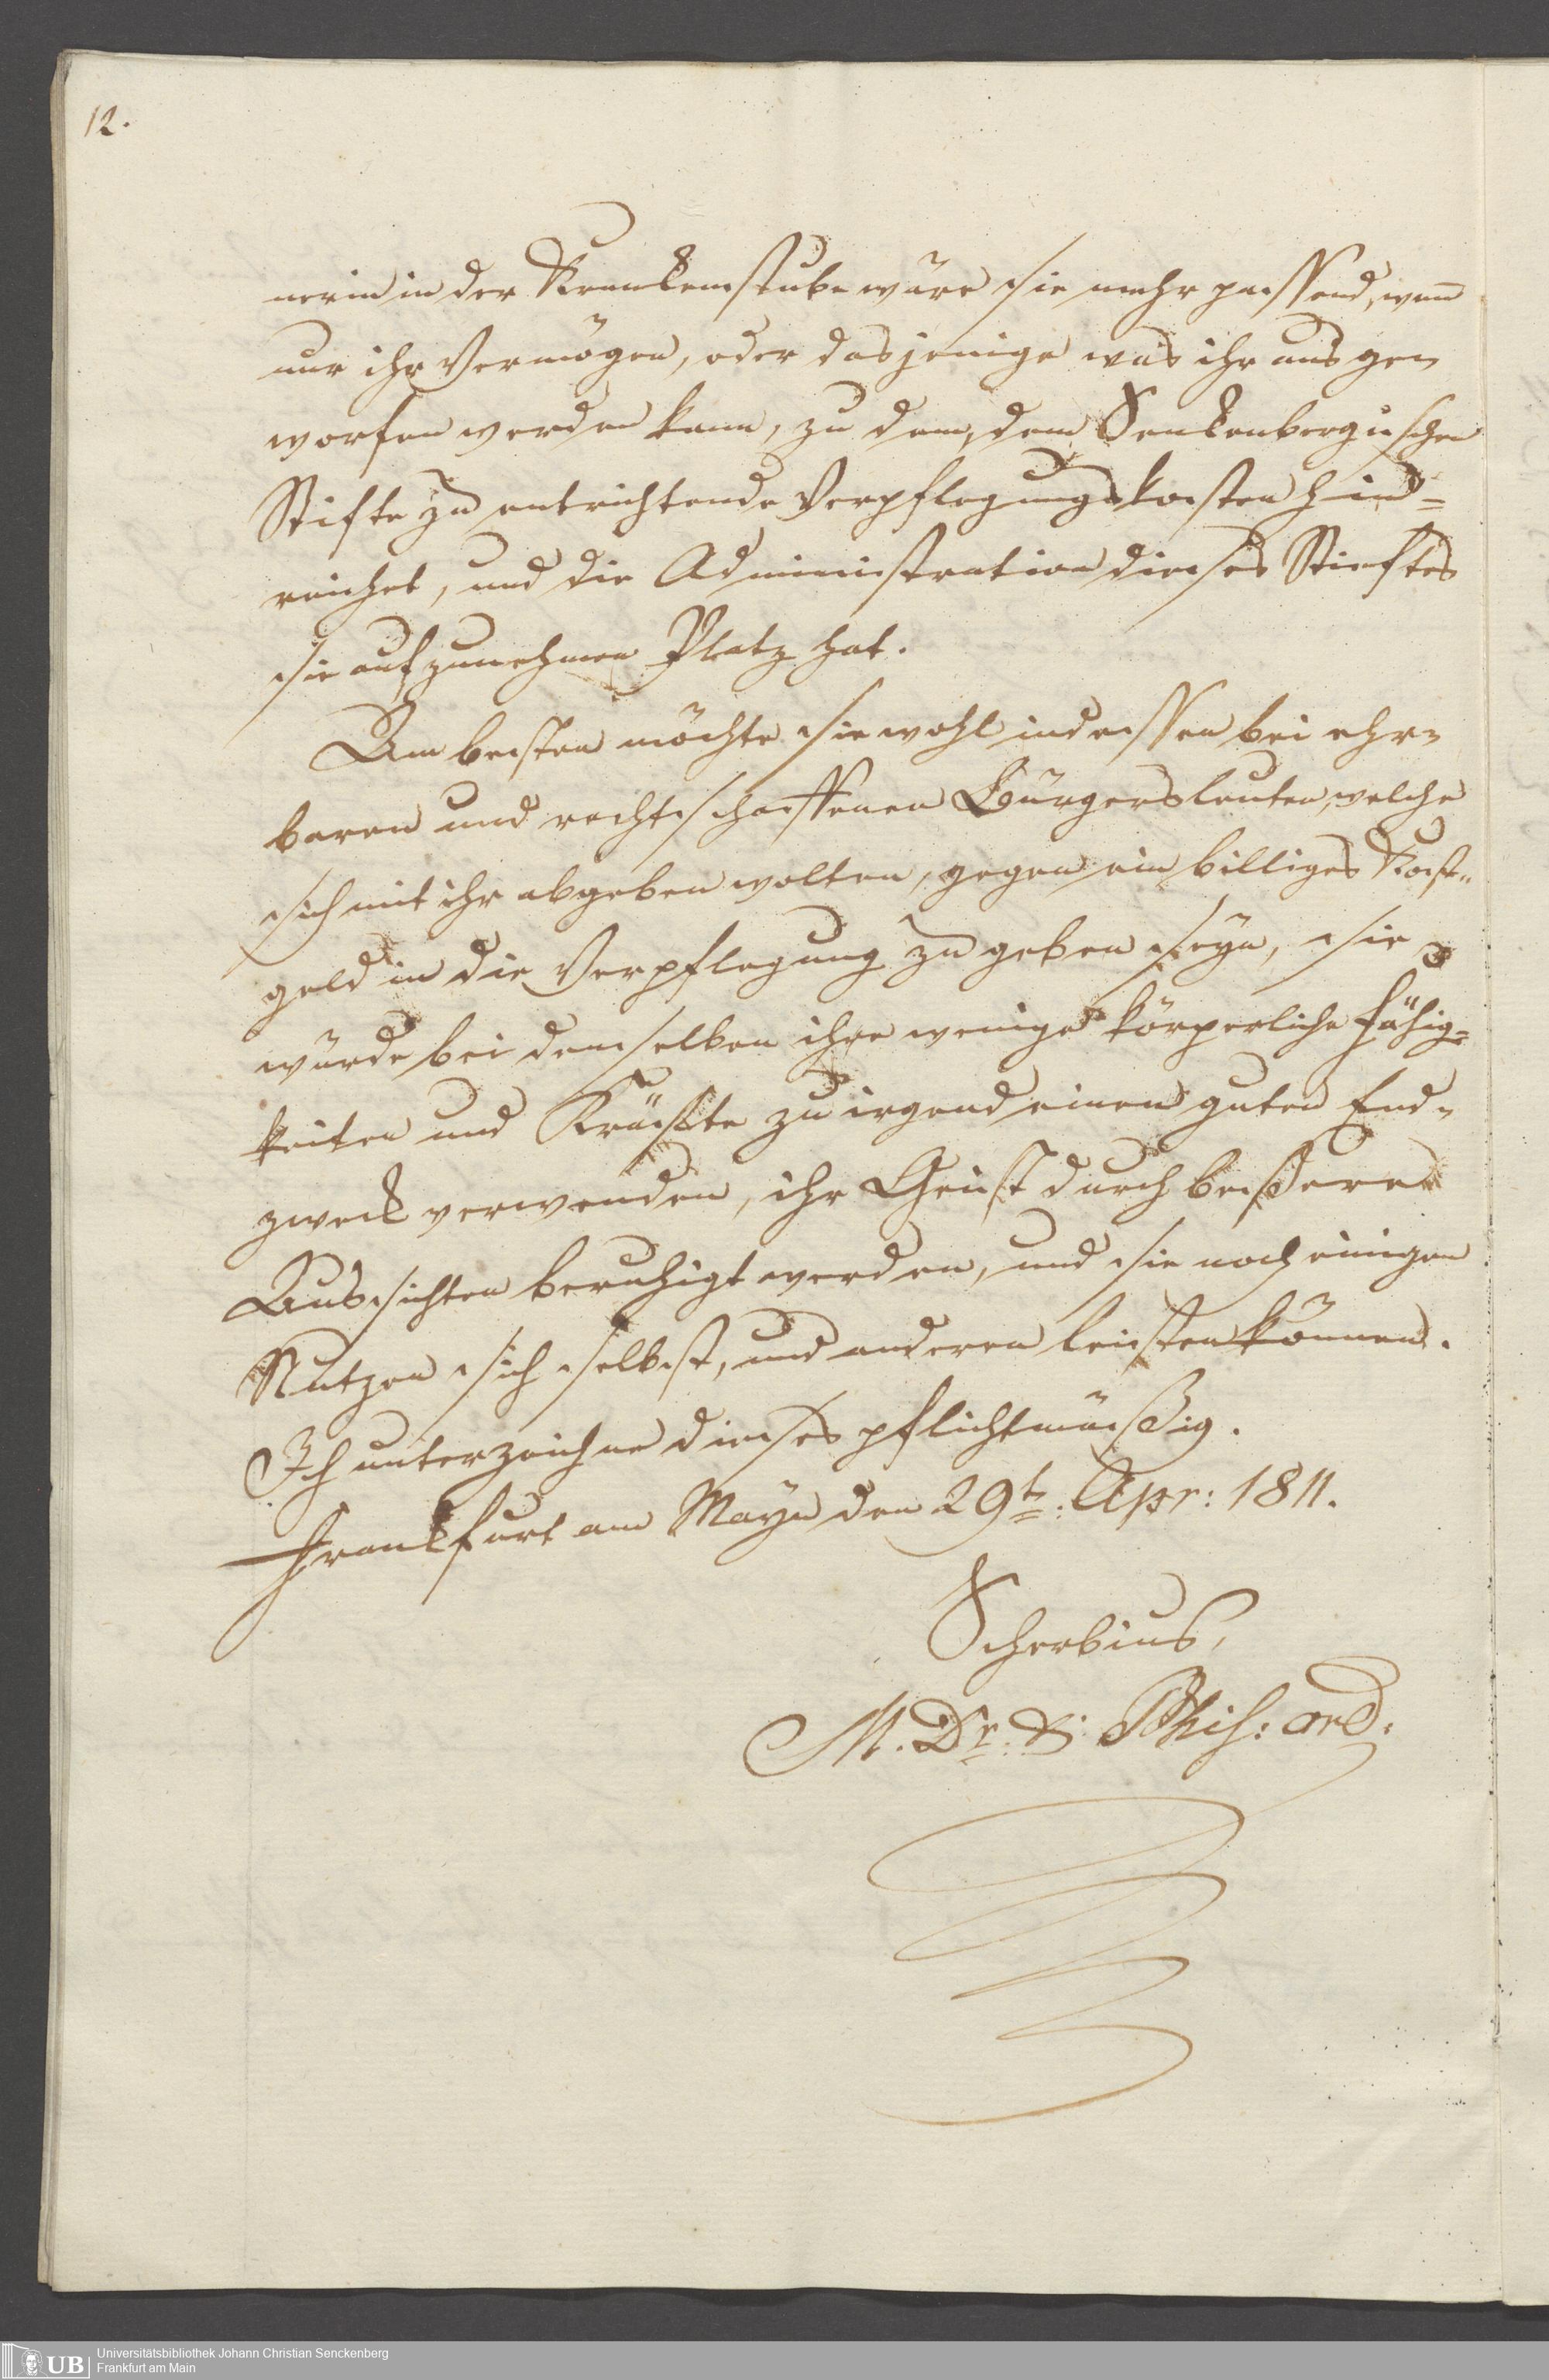 12.
nerin in der Krankenstube wäre sie mehr passend, wen̅
nur ihr Vermögen, oder dasjenige was ihr aus ge=
worfen werden kann, zu dem, dem Senkenbergischen
Stifte zu entrichtende Verpflegungskosten hin=
reichet, und die Administration dieses Stiftes
sie aufzunehmen Platz hat.
Am besten möchte sie wohl indessen bei ehr=
baren und rechtschaffenen Bürgersleuten, welche
sich mit ihr abgeben wolten, gegen ein billiges Kost=
geld in die Verpflegung zu geben seÿn, sie
würde bei demselben ihre wenige körperliche Fähig=
keiten und Kräfte zu irgend einen guten End=
zwek verwenden, ihr Geist durch beßere
Aussichten beruhigt werden, und sie noch einigen
Nutzen sich selbst, und anderen leisten können.
Ich unterzeichne dieses pflichtmäßig.
Frankfurt am Maÿn den 29t: Apr: 1811.
Scherbius,
M. Dr. & Phis: ord:
UB Universitätsbibliothek Johann Christian Senckenberg
Frankfurt am Main